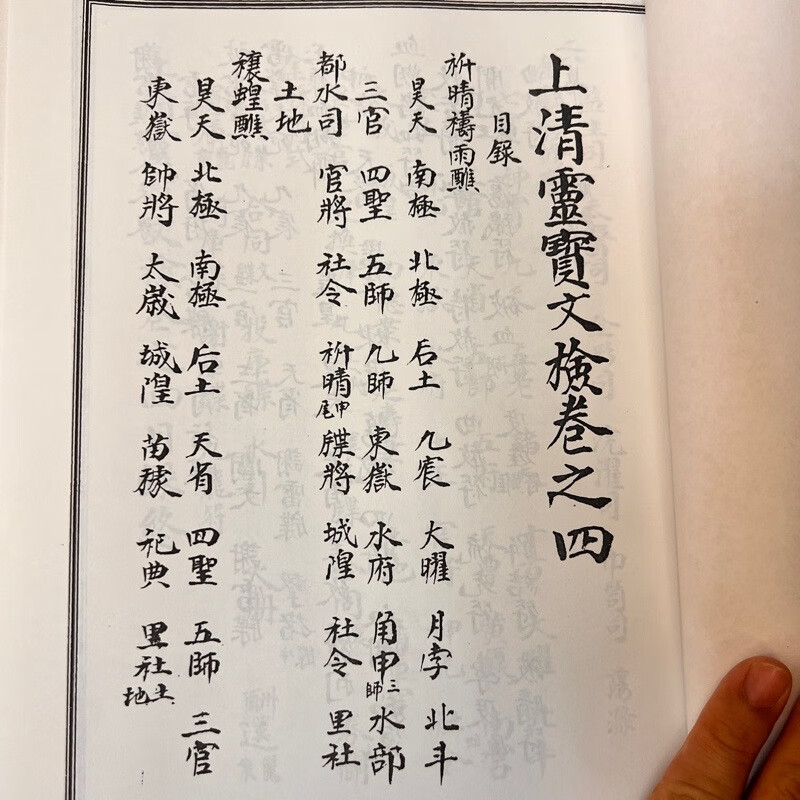 上清靈寶文檢卷之四
目錄
祈晴禱雨醮
昊天 南極 北極 后土 九宸 大曜 月孛 北斗
三官 四聖 五師 九師 東嶽 水府 角申三師 水部
都水司 官將 社令 祈晴申尾 牒將 城隍 社令 里社
土地
禳蝗醮
昊天 北極 南極 后土 天省 四聖 五師 三官
東嶽 帥將 太歲 城隍 苗稼 祀典 里社土地